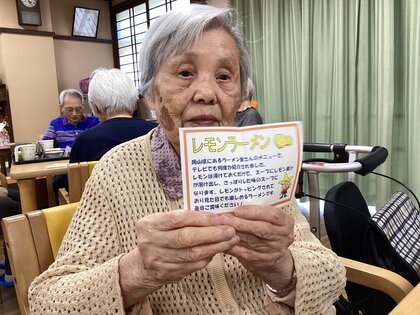 レモンラーメン
岡山県にあるラーメン屋さんのメニューで、
テレビでも何度か紹介されました。
レモンは浸けておくだけで、スープにレモン汁
が溶け出し、さっぱりした味のスープに
なります。レモンがトッピングされて
おり見た目でも楽しめるラーメンです。
是非ご賞味ください！